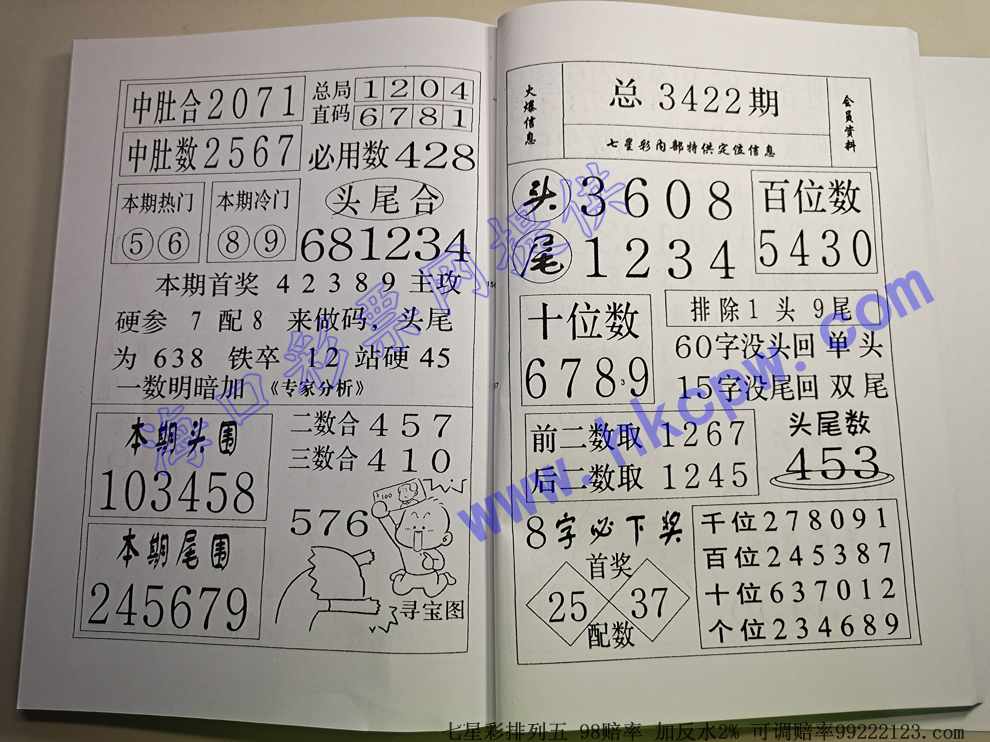 中肚合2071
总局 1204
直码 6781
中肚数2567
必用数428
本期热门
⑤⑥
本期冷门
⑧⑨
头尾合
681234
本期首奖 42389 主攻
硬参 7 配8 来做码，头尾
为 638 铁卒 12 站硬 45
一数明暗加 《专家分析》
本期头围
103458
二数合 457
三数合 410
本期尾围
245679
576
寻宝图
火爆信息
总 3422期
七星彩内部特供定位信息
会员资料
头 3608
尾 1234
百位数
5430
十位数
6789
排除1头9尾
60字没头回单头
15字没尾回双尾
前二数取 1267
后二数取 1245
头尾数
453
8字必下奖
首奖
25 37
配数
千位278091
百位245387
十位637012
个位234689
海口彩票网提供
www.hkcpw.com
七星彩排列五 98赔率 加反水2% 可调赔率99222123.com